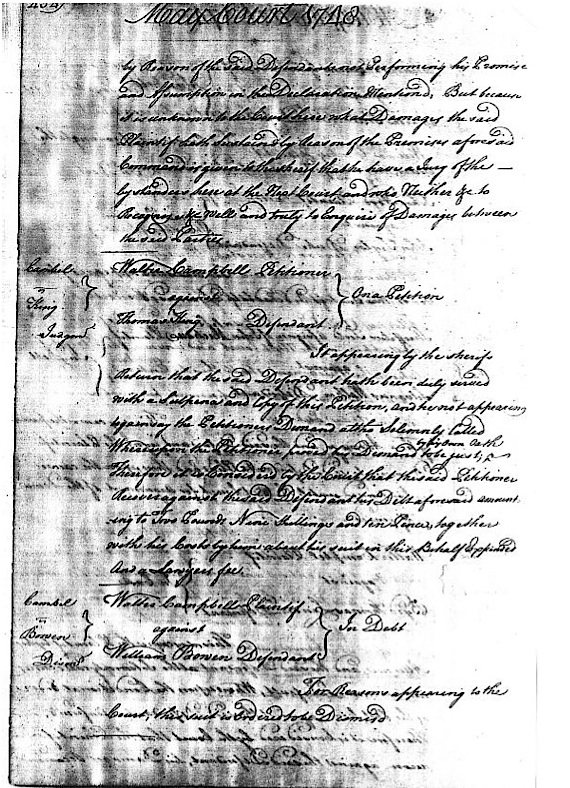 May Court 1748
by Reason of the said Defendants not Performing his Promise
and Assumption in the Declaration Mentiond, But because
it is unknown to the Court here what Damages the said
Plaintif hath Sustaind by Reason of the Premises aforesaid
Command is given to the sherif that he have a Jury of the —
bystanders here at the Next Court and who Neither &c to
Recognize &c well and truly to Enquire of Damages between
the said Parties
Cambel
vs
King
Judgmt
Walter Campbell Petitioner
against
Thomas King Defendant
On a Petition
It appearing by the sherifs
Return that the said Defendant hath been duly served
with a Supena and Copy of this Petition, and he not appearing
to gainsay the Petitioners Demand altho Solemnly called
Whereupon the Petitioner proved his Demand to be just,
by his own Oath
Therefore it is Considered by the Court that the said Petitioner
Recover against the said Defendant his Debt aforesaid amount
ing to Two Pounds Nine Shillings and ten Pence, together
with his Costs by him about his suit in this Behalf Expended
And a Lawyers fee
Cambel
vs
Bowen
Dismt
Walter Campbell Plaintif
against
William Bowen Defendant
In Debt
For Reasons appearing to the
Court, this suit is Ordered to be Dismisd